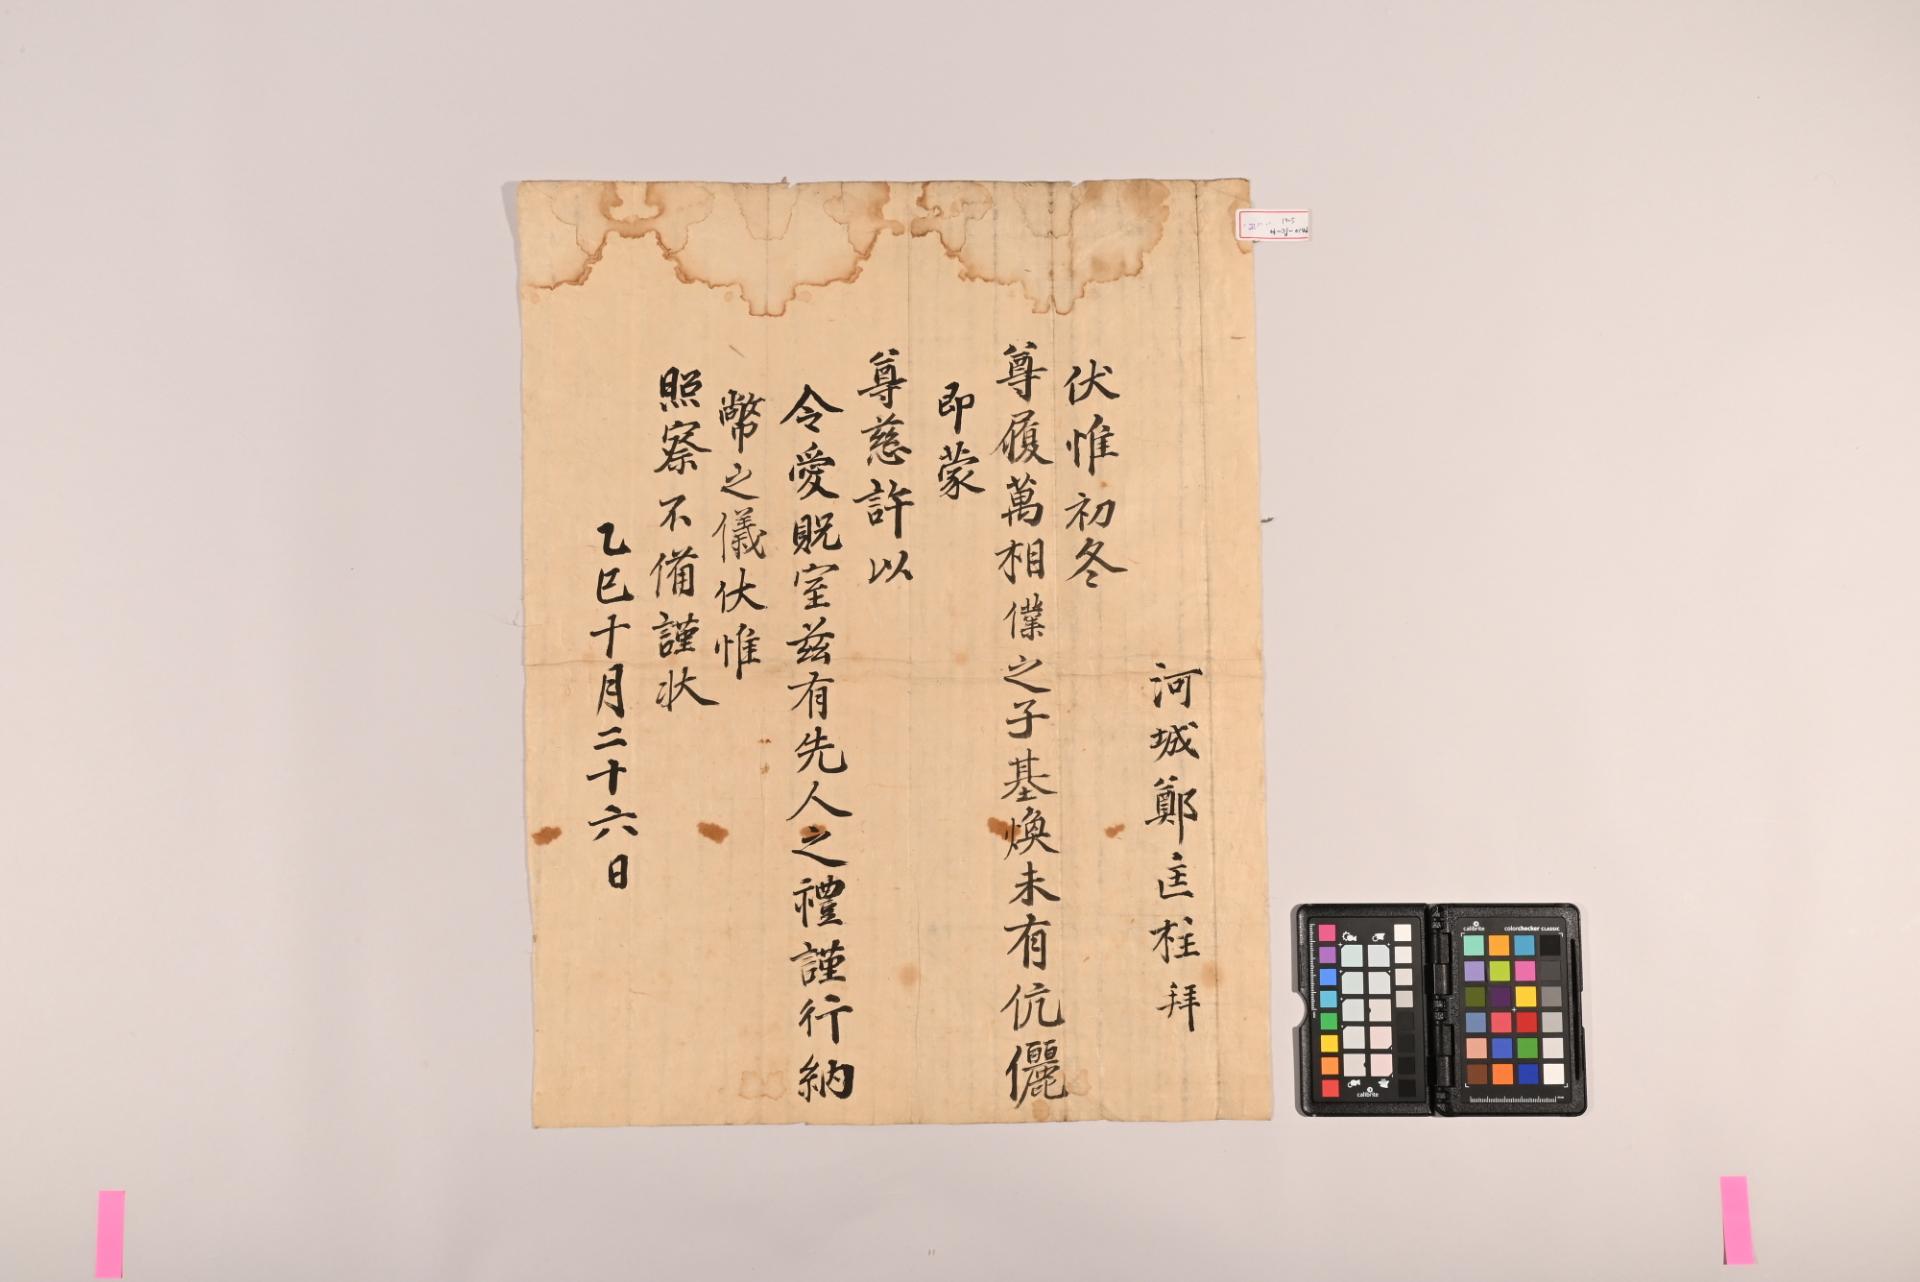 河城鄭匡柱拜
伏惟初冬
尊履萬相僕之子基煥未有伉儷
即蒙
尊慈許以
令愛貺室玆有先人之禮謹行納
幣之儀伏惟
照察不備謹狀
乙巳十月二十六日
calibrite
calibrite
colorchecker CLASSIC